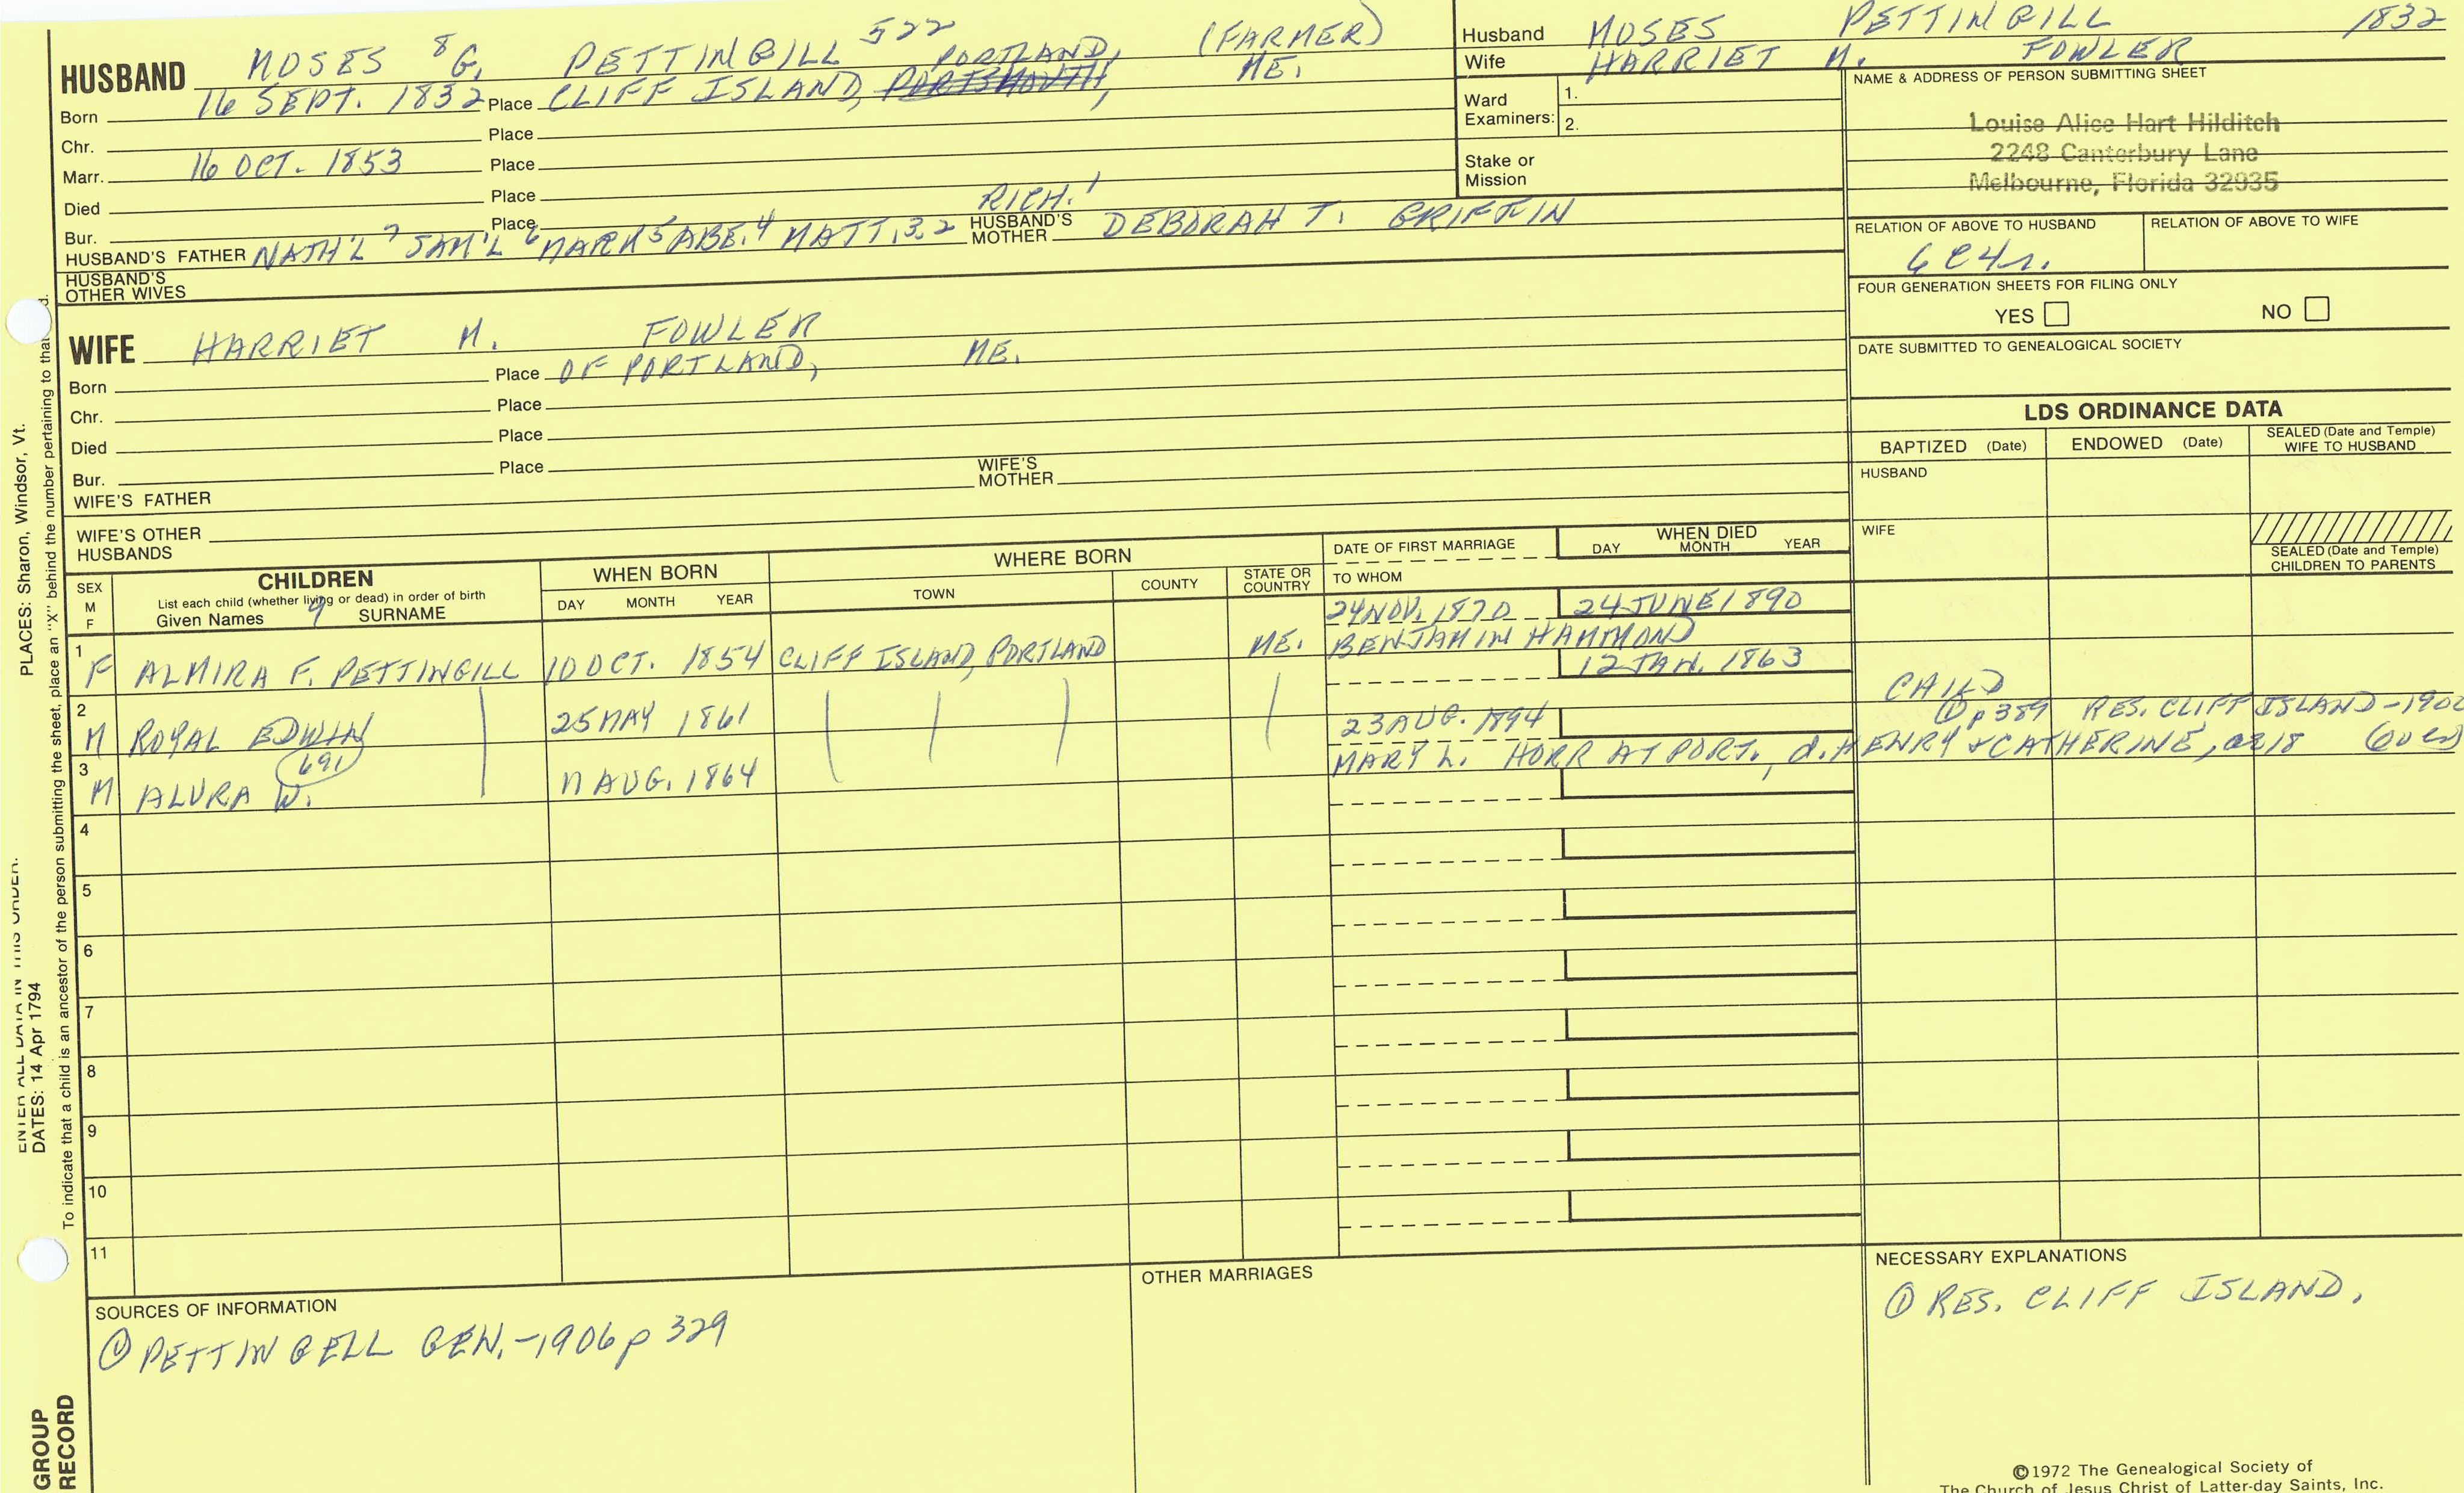 HUSBAND MOSES 8 G. PETTINGILL 522 (FARMER)
Born 16 SEPT. 1832 Place CLIFF ISLAND, PORTSMOUTH, PORTLAND, ME.
Chr. Place
Marr. 16 OCT. 1853 Place
Died Place
Bur. Place
RICH. 1
HUSBAND'S FATHER NATH'L 7 SAM'L 6 MARK 5 ABE. 4 MATT. 3, 2 HUSBAND'S MOTHER DEBORAH T. GRIFFIN
HUSBAND'S OTHER WIVES
WIFE HARRIET M. FOWLER
Born Place OF PORTLAND, ME.
Chr. Place
Died Place
Bur. Place
WIFE'S FATHER WIFE'S MOTHER
WIFE'S OTHER HUSBANDS
Husband MOSES PETTINGILL 1832
Wife HARRIET M. FOWLER
Ward Examiners: 1. 2.
Stake or Mission
NAME & ADDRESS OF PERSON SUBMITTING SHEET
Louise Alice Hart Hilditch
2248 Canterbury Lane
Melbourne, Florida 32935
RELATION OF ABOVE TO HUSBAND RELATION OF ABOVE TO WIFE
6C4r.
FOUR GENERATION SHEETS FOR FILING ONLY
YES NO
DATE SUBMITTED TO GENEALOGICAL SOCIETY
LDS ORDINANCE DATA
BAPTIZED (Date) ENDOWED (Date) SEALED (Date and Temple) WIFE TO HUSBAND
HUSBAND
WIFE
SEALED (Date and Temple) CHILDREN TO PARENTS
SEX M F CHILDREN WHEN BORN WHERE BORN DATE OF FIRST MARRIAGE WHEN DIED
List each child (whether living or dead) in order of birth DAY MONTH YEAR TOWN COUNTY STATE OR COUNTRY TO WHOM DAY MONTH YEAR
Given Names 9 SURNAME
24 NOV. 1870 24 JUNE 1890
1 F ALMIRA F. PETTINGILL 10 OCT. 1854 CLIFF ISLAND, PORTLAND ME. BENJAMIN HAMMOND
12 JAN. 1863
2 M ROYAL EDWIN 25 MAY 1861 CHILD
23 AUG. 1894 ① p 389 RES. CLIFF ISLAND-1900
3 M ALVRA W. 691 17 AUG. 1864 MARY L. HORR AT PORT., d. HENRY & CATHERINE, ae 18
4
5
6
7
8
9
10
11
SOURCES OF INFORMATION
① PETTINGELL GEN.-1906 p 329
OTHER MARRIAGES
NECESSARY EXPLANATIONS
① RES. CLIFF ISLAND.
©1972 The Genealogical Society of
The Church of Jesus Christ of Latter-day Saints, Inc.
ENTER ALL DATA IN THIS ORDER.
DATES: 14 Apr 1794 PLACES: Sharon, Windsor, Vt.
To indicate that a child is an ancestor of the person submitting the sheet, place an "X" behind the number pertaining to that
GROUP
RECORD